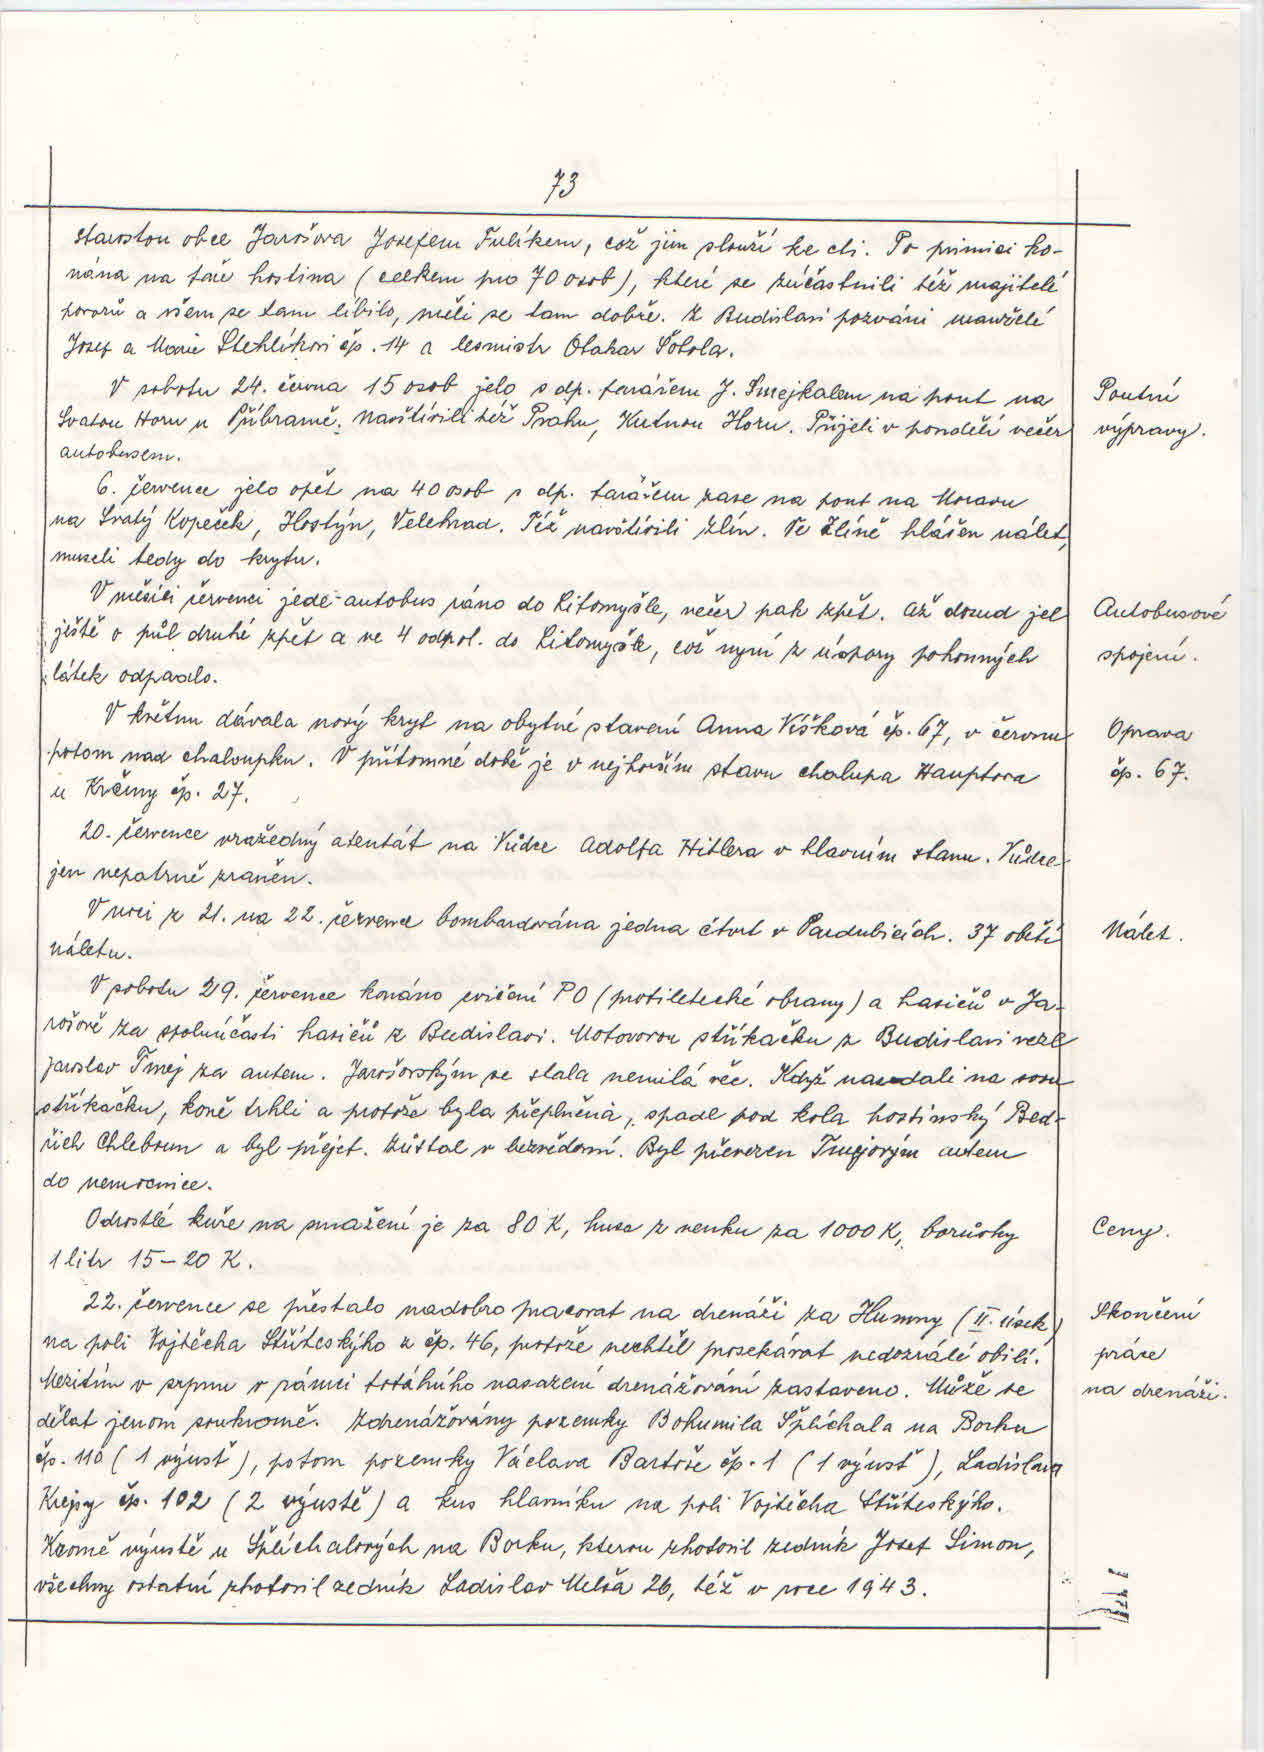 73
starostou obce Jarošova Josefem Fulíkem, což jim slouží ke cti. Po primici ko-
nána na faře hostina (celkem pro 70 osob), které se zúčastnili též majitelé
povozů a všem se tam líbilo, měli se tam dobře. Z Budislavi pozváni manželé
Josef a Marie Stehlíkovi čp. 14 a lesmistr Otakar Šotola.
V sobotu 24. června 15 osob jelo s dp. farářem J. Smejkalem na pouť na
Svatou Horu u Příbramě. Navštívili též Prahu, Kutnou Horu. Přijeli v pondělí večer
autobusem.
Poutní
výpravy.
6. července jelo opět na 40 osob s dp. farářem zase na pouť na Moravu
na Svatý Kopeček, Hostýn, Velehrad. Též navštívili Zlín. Ve Zlíně hlášen nálet,
museli tedy do krytu.
V měsíci červenci jede autobus ráno do Litomyšle, večer pak zpět. Až dosud jel
ještě o půl druhé zpět a ve 4 odpol. do Litomyšle, což nyní z úspory pohonných
látek odpadlo.
Autobusové
spojení.
V květnu dávala nový kryt na obytné stavení Anna Víšková čp. 67, v červnu
potom nad chaloupku. V přítomné době je v nejhorším stavu chalupa Hauptova
u Krčmy čp. 27.
Oprava
čp. 67.
20. července vražedný atentát na Vůdce Adolfa Hitlera v hlavním stanu. Vůdce
jen nepatrně zraněn.
V noci z 21. na 22. července bombardována jedna čtvrt v Pardubicích. 37 obětí
náletu.
Nálet.
V sobotu 29. července konáno cvičení PO (protiletecké obrany) a hasičů v Ja-
rošově za spoluúčasti hasičů z Budislavi. Motorovou stříkačku z Budislavi vezl
Jaroslav Tmej za autem. Jarošovským se stala nemilá věc. Když nasedali na svou
stříkačku, koně trhli a protože byla přeplněná, spadl pod kola hostinský Bed-
řich Chleboun a byl přejet. Zůstal v bezvědomí. Byl převezen Tmejovým autem
do nemocnice.
Odrostlé kuře na smažení je za 80 K, husa z venku za 1000 K, borůvky
1 litr 15–20 K.
Ceny.
22. července se přestalo nadobro pracovat na drenáži za Humny (II. úsek)
na poli Vojtěcha Stříteskýho z čp. 46, protože nechtěl prosekávat nedozrálé obilí.
Mezitím v srpnu v rámci totálního nasazení drenážování zastaveno. Může se
dělat jenom soukromě. Zdrenážovány pozemky Bohumila Šplíchala na Borku
čp. 110 (1 výusť), potom pozemky Václava Bartoše čp. 1 (1 výusť), Ladislava
Krejsy čp. 102 (2 výustě) a kus hlavníku na poli Vojtěcha Stříteskýho.
Kromě výustě u Šplíchalových na Borku, kterou zhotovil zedník Josef Simon,
všechny ostatní zhotovil zedník Ladislav Melša 26, též v roce 1943.
Skončení
práce
na drenáži.